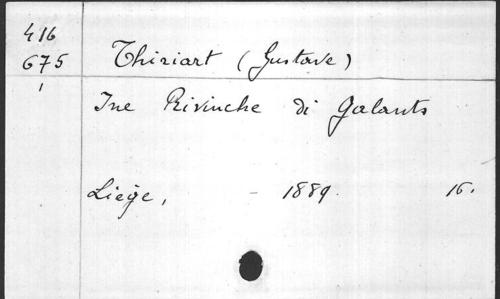 416
675 Thiriart (Gustave)
Ine Rivinche di Galants
Liège, - 1889. 16.